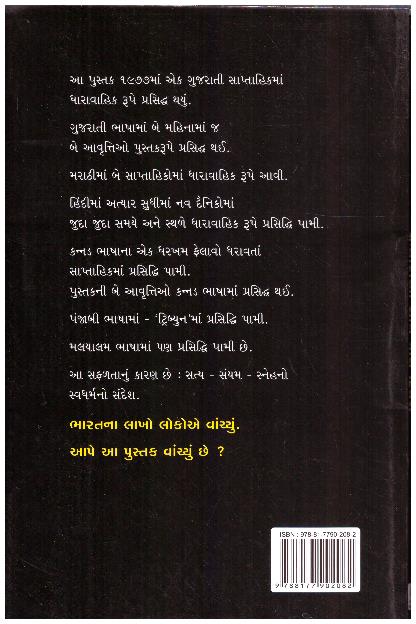 આ પુસ્તક ૧૯૭૭માં એક ગુજરાતી સાપ્તાહિકમાં
ધારાવાહિક રૂપે પ્રસિદ્ધ થયું.
ગુજરાતી ભાષામાં બે મહિનામાં જ
બે આવૃત્તિઓ પુસ્તકરૂપે પ્રસિદ્ધ થઈ.
મરાઠીમાં બે સાપ્તાહિકોમાં ધારાવાહિક રૂપે આવી.
હિંદીમાં અત્યાર સુધીમાં નવ દૈનિકોમાં
જુદા જુદા સમયે અને સ્થળે ધારાવાહિક રૂપે પ્રસિદ્ધિ પામી.
કન્નડ ભાષાના એક ધરખમ ફેલાવો ધરાવતાં
સાપ્તાહિકમાં પ્રસિદ્ધિ પામી.
પુસ્તકની બે આવૃત્તિઓ કન્નડ ભાષામાં પ્રસિદ્ધ થઈ.
પંજાબી ભાષામાં - 'ટ્રિબ્યુન'માં પ્રસિદ્ધિ પામી.
મલયાલમ ભાષામાં પણ પ્રસિદ્ધિ પામી છે.
આ સફળતાનું કારણ છે : સત્ય - સંયમ - સ્નેહનો
સ્વધર્મનો સંદેશ.
ભારતના લાખો લોકોએ વાંચ્યું.
આપે આ પુસ્તક વાંચ્યું છે ?
ISBN : 978-81-7790-208-2
9788177902082